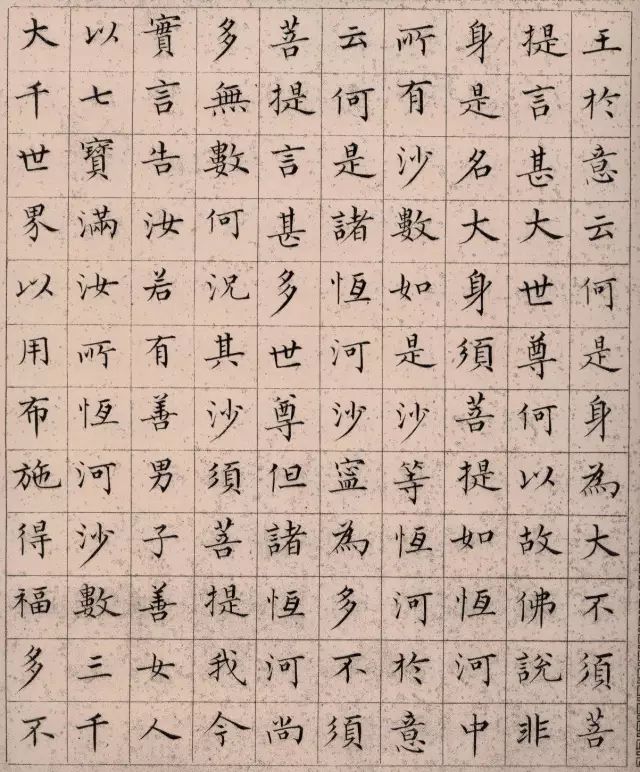 王於意云何是身為大不須菩
提言甚大世尊何以故佛說非
身是名大身須菩提如恆河中
所有沙數如是沙等恆河於意
云何是諸恆河沙寍為多不須
菩提言甚多世尊但諸恆河尚
多無數何況其沙須菩提我今
實言告汝若有善男子善女人
以七寶滿汝所恆河沙數三千
大千世界以用布施得福多不